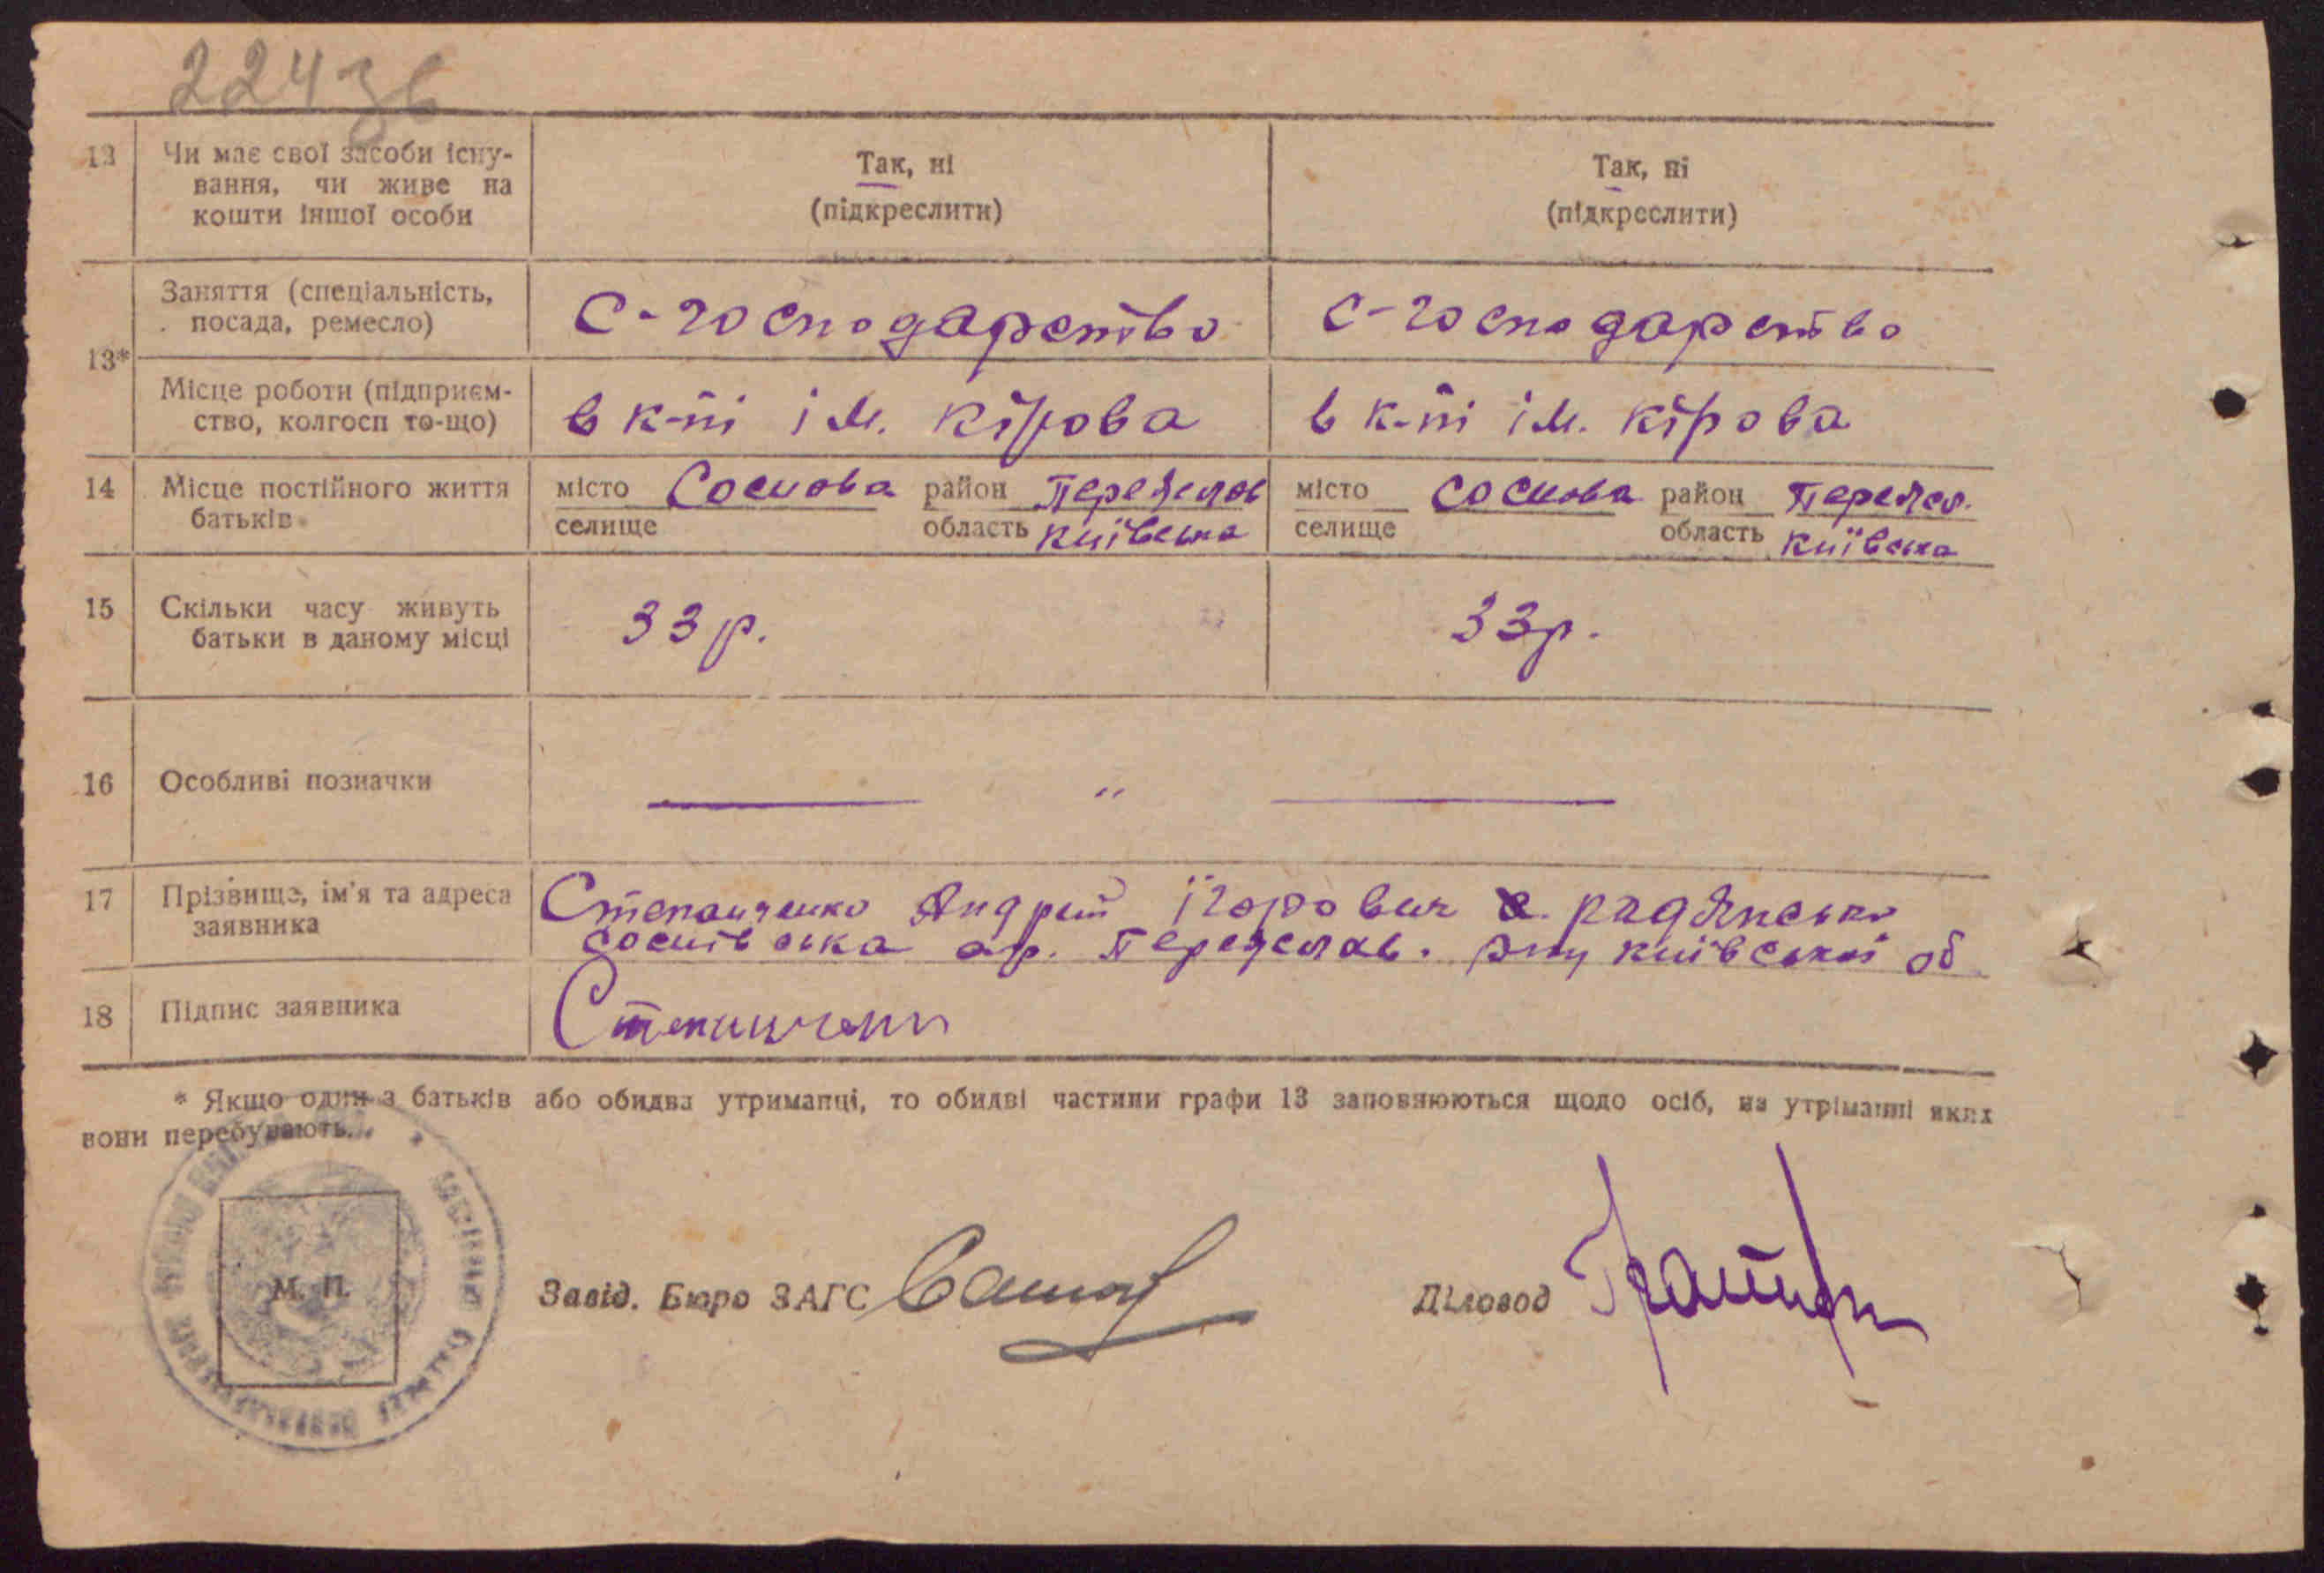 224 зв
12 Чи має свої засоби існу-
вання, чи живе на
кошти іншої особи
Так, ні
(підкреслити)
Так, ні
(підкреслити)
13*
Заняття (спеціальність,
посада, ремесло)
С-господарство
С-господарство
Місце роботи (підприєм-
ство, колгосп то-що)
в к-пі ім. кірова
в к-пі ім. кірова
14 Місце постійного життя
батьків
місто Соснова район Переяслов
селище область київська
місто Соснова район Переясл.
селище область київська
15 Скільки часу живуть
батьки в даному місці
33 р.
33 р.
16 Особливі позначки
— " —
17 Прізвище, ім'я та адреса
заявника
Степанченко Андрій ігорович с. радянська
соснівська Переяслав. р-ну київської об
18 Підпис заявника
* Якщо один з батьків або обидва утриманці, то обидві частини графи 13 заповнюються щодо осіб, на утріманні яких
вони перебувають.
М. П.
Завід. Бюро ЗАГС
Діловод